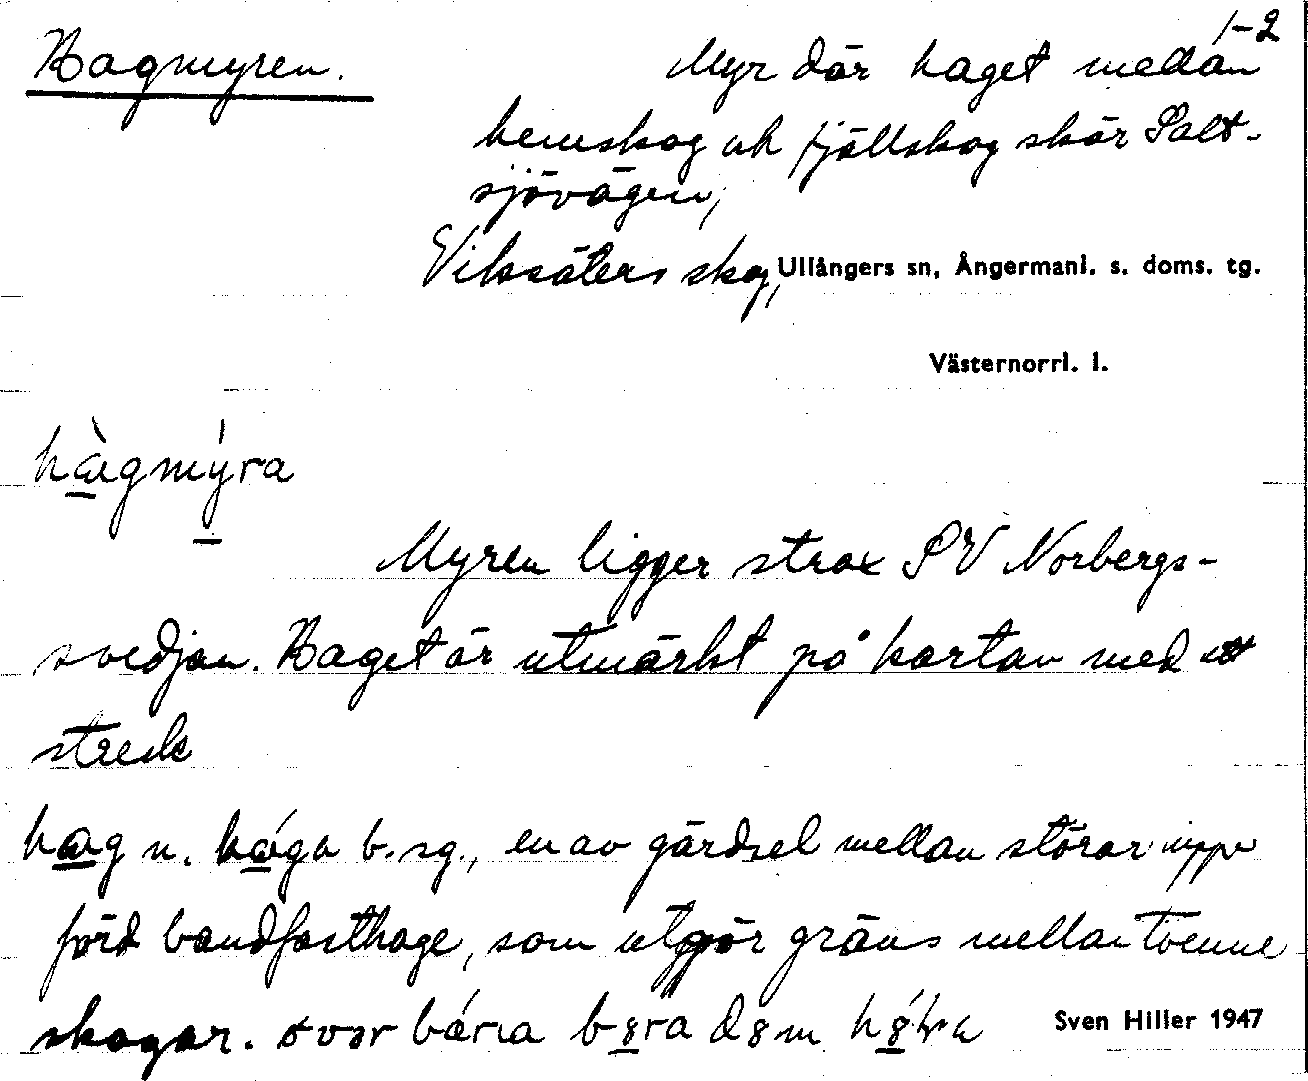 1-2
Hagmyren. Myr där haget mellan
hemskog och fjällskog skär Salt-
sjövägen,
Viksäters skog, Ullångers sn, Ångermanl. s. doms. tg.
Västernorrl. l.
hàgmýra
Myren ligger strax SV Norbergs-
svedjan. Haget är utmärkt på kartan med ett
streck
hag n. hága b. sg., en av gärdsel mellan störar uppe
förd bandfasthage, som utgör gräns mellan tvenne
skogar.
Sven Hiller 1947